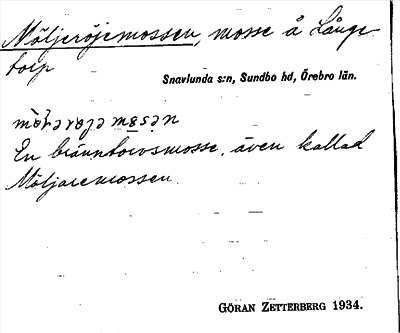 Möljeröjemossen, mosse å Långe-
torp
Snavlunda s:n, Sundbo hd, Örebro län.
En bränntorvsmosse, även kallad
Möljaremossen.
GÖRAN ZETTERBERG 1934.